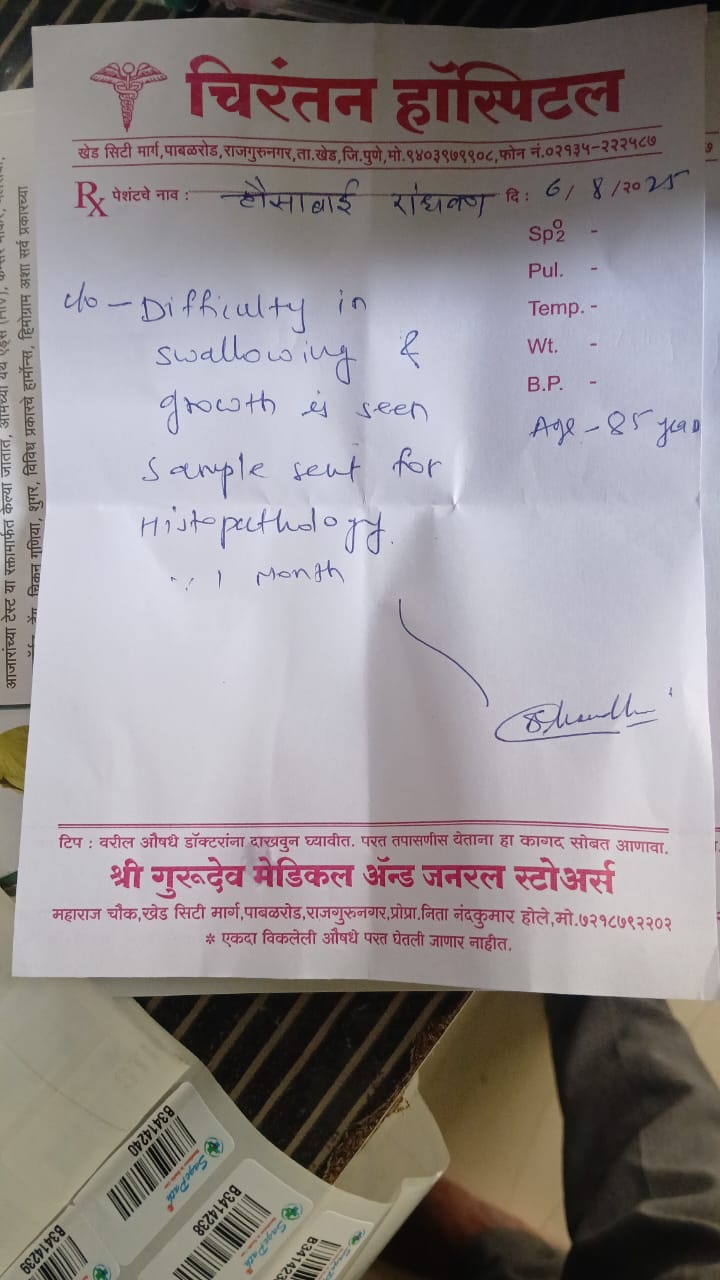 चिरंतन हॉस्पिटल
खेड सिटी मार्ग,पाबळरोड,राजगुरुनगर,ता.खेड,जि.पुणे,मो.९४०३९७९९०८,फोन नं.०२१३५-२२२५८७
Rx पेशंटचे नाव : हौसाबाई दि : 6/8/२०25
Spo2 -
Pul. -
Temp. -
Wt. -
B.P. -
Age - 85 years
c/o - Difficulty in
swallowing &
growth is seen
sample sent for
Histopathology.
1 Month
टिप : वरील औषधे डॉक्टरांना दाखवुन घ्यावीत. परत तपासणीस येताना हा कागद सोबत आणावा.
श्री गुरूदेव मेडिकल ॲन्ड जनरल स्टोअर्स
महाराज चौक,खेड सिटी मार्ग,पाबळरोड,राजगुरुनगर,प्रोप्रा.निता नंदकुमार होले,मो.७२१८७९२२०२
* एकदा विकलेली औषधे परत घेतली जाणार नाहीत.
आजारांच्या टेस्ट या रक्तामार्फत केल्या जातात,
चिकन गुणिया, शुगर, विविध प्रकारचे हार्मोन्स, हिमोग्राम अशा सर्व प्रकारच्या
B3414240
SagePath
B3414238
SagePath
B3414239